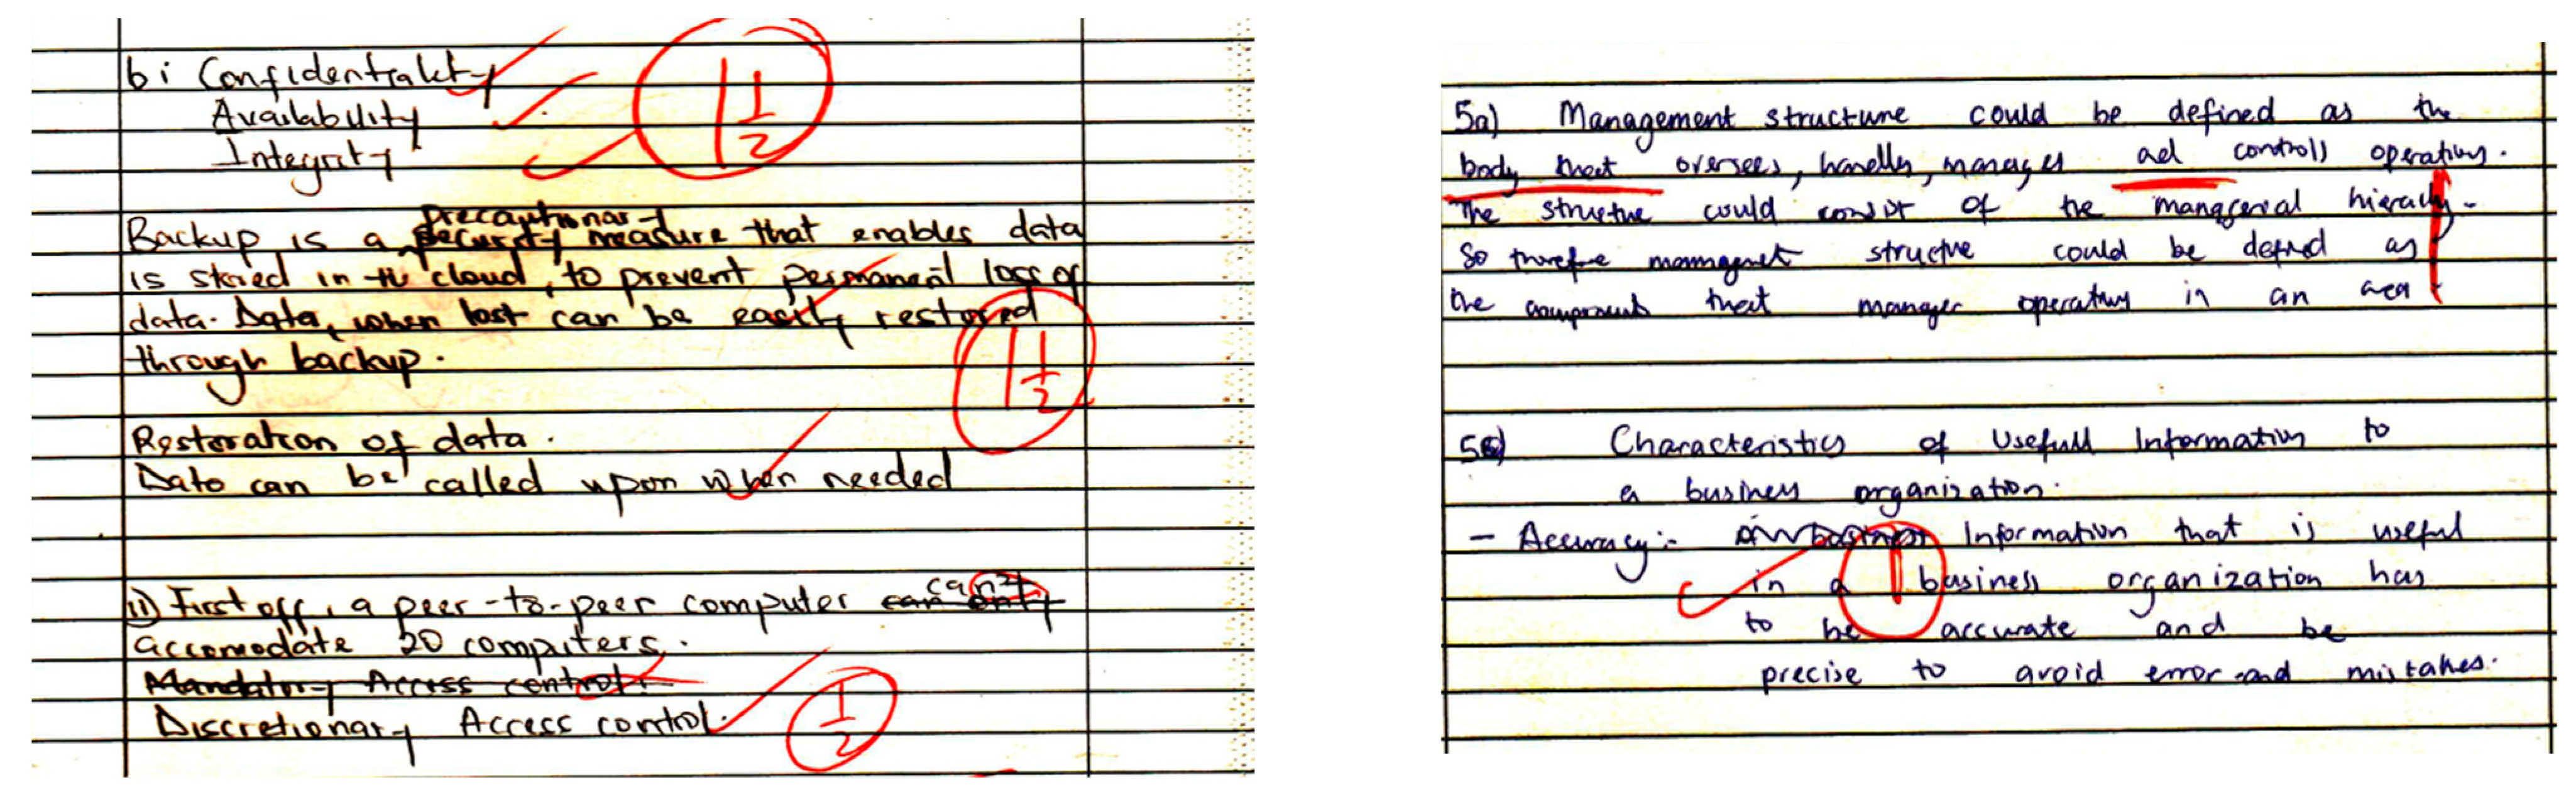 bi Confidentiality
Availability
Integrity
1 1/2
precautionary
Backup is a security measure that enables data
is stored in the cloud, to prevent permanent loss of
data. Data, when lost can be easily restored
through backup.
1 1/2
Restoration of data.
Data can be called upon when needed
ii) First off, a peer-to-peer computer can only can
accomodate 20 computers.
Mandatory Access control.
Discretionary Access control.
1/2
5a) Management structure could be defined as the
body that oversees, handles, manages and controls operations.
The structure could consist of the managerial hierachy.
So therefore management structure could be defined as
the components that manages operations in an area
Characteristics of Usefull Information to
a business organization.
- Accuracy:- Information that is useful
in a business organization has
1
to be accurate and be
precise to avoid error and mistakes.